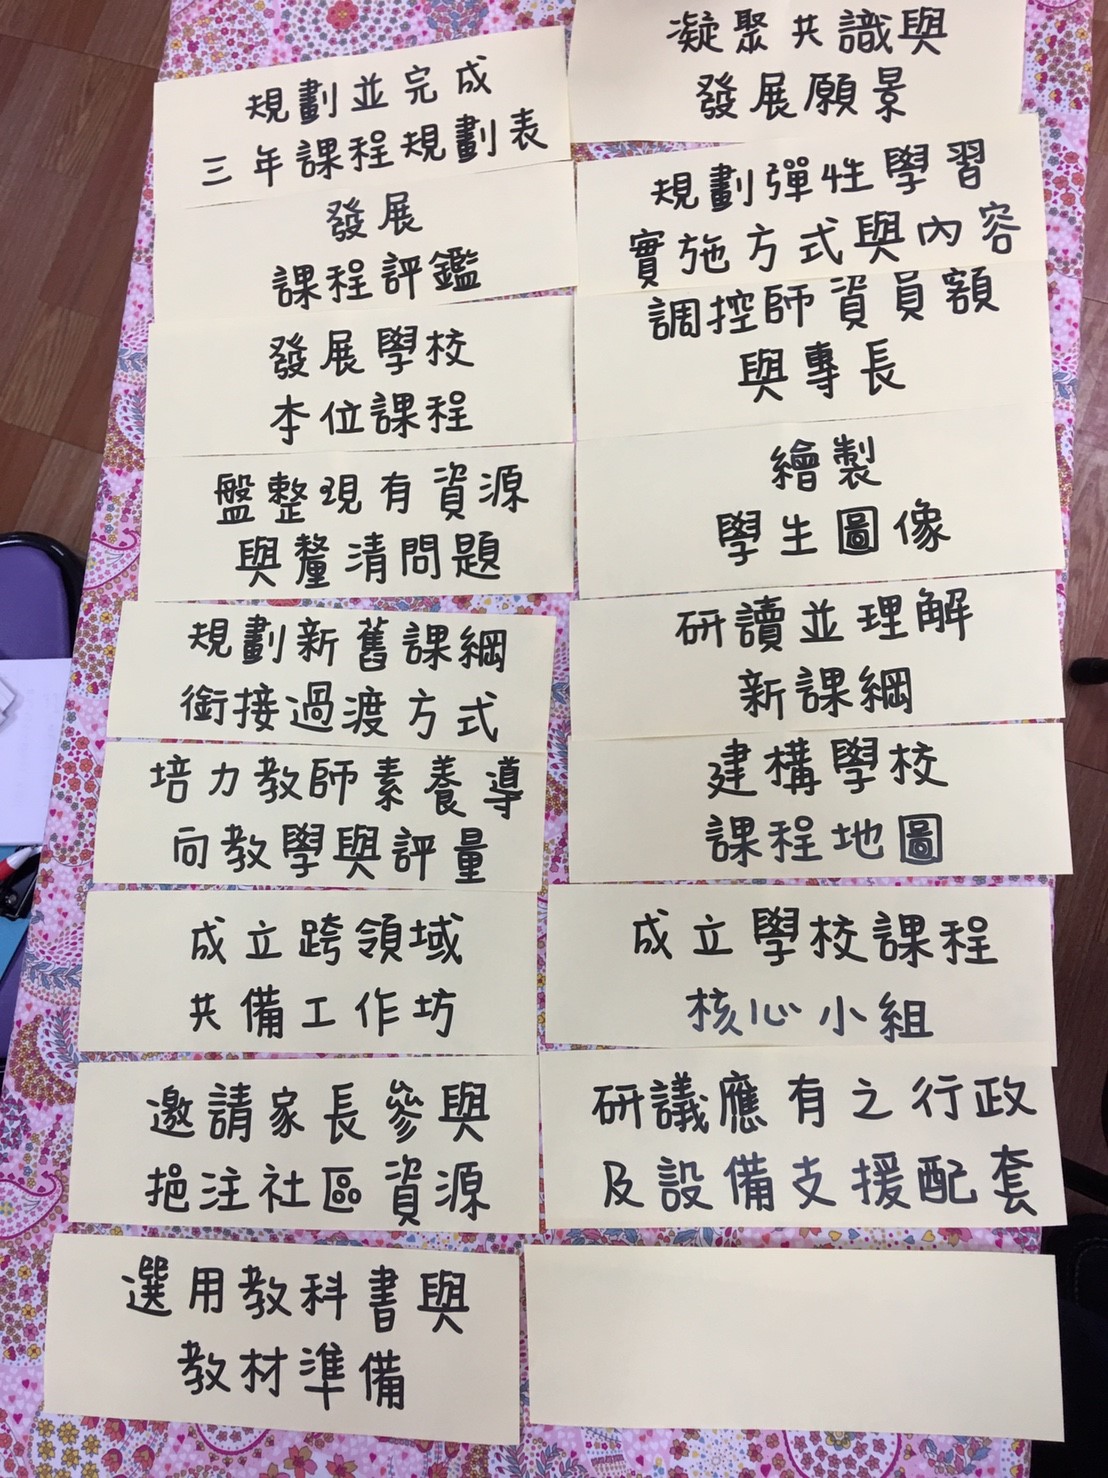 規劃並完成
三年課程規劃表
發展
課程評鑑
發展學校
本位課程
盤整現有資源
與釐清問題
規劃新舊課綱
銜接過渡方式
培力教師素養導
向教學與評量
成立跨領域
共備工作坊
邀請家長參與
挹注社區資源
選用教科書與
教材準備
凝聚共識與
發展願景
規劃彈性學習
實施方式與內容
調控師資員額
與專長
繪製
學生圖像
研讀並理解
新課綱
建構學校
課程地圖
成立學校課程
核心小組
研議應有之行政
及設備支援配套